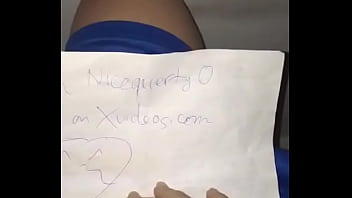 Nicequerty0
on Xvideos.com